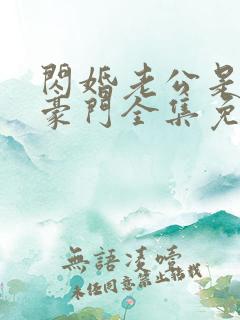 閃婚老公是
豪門全集免
無語凌噎
未经同意禁止搭载